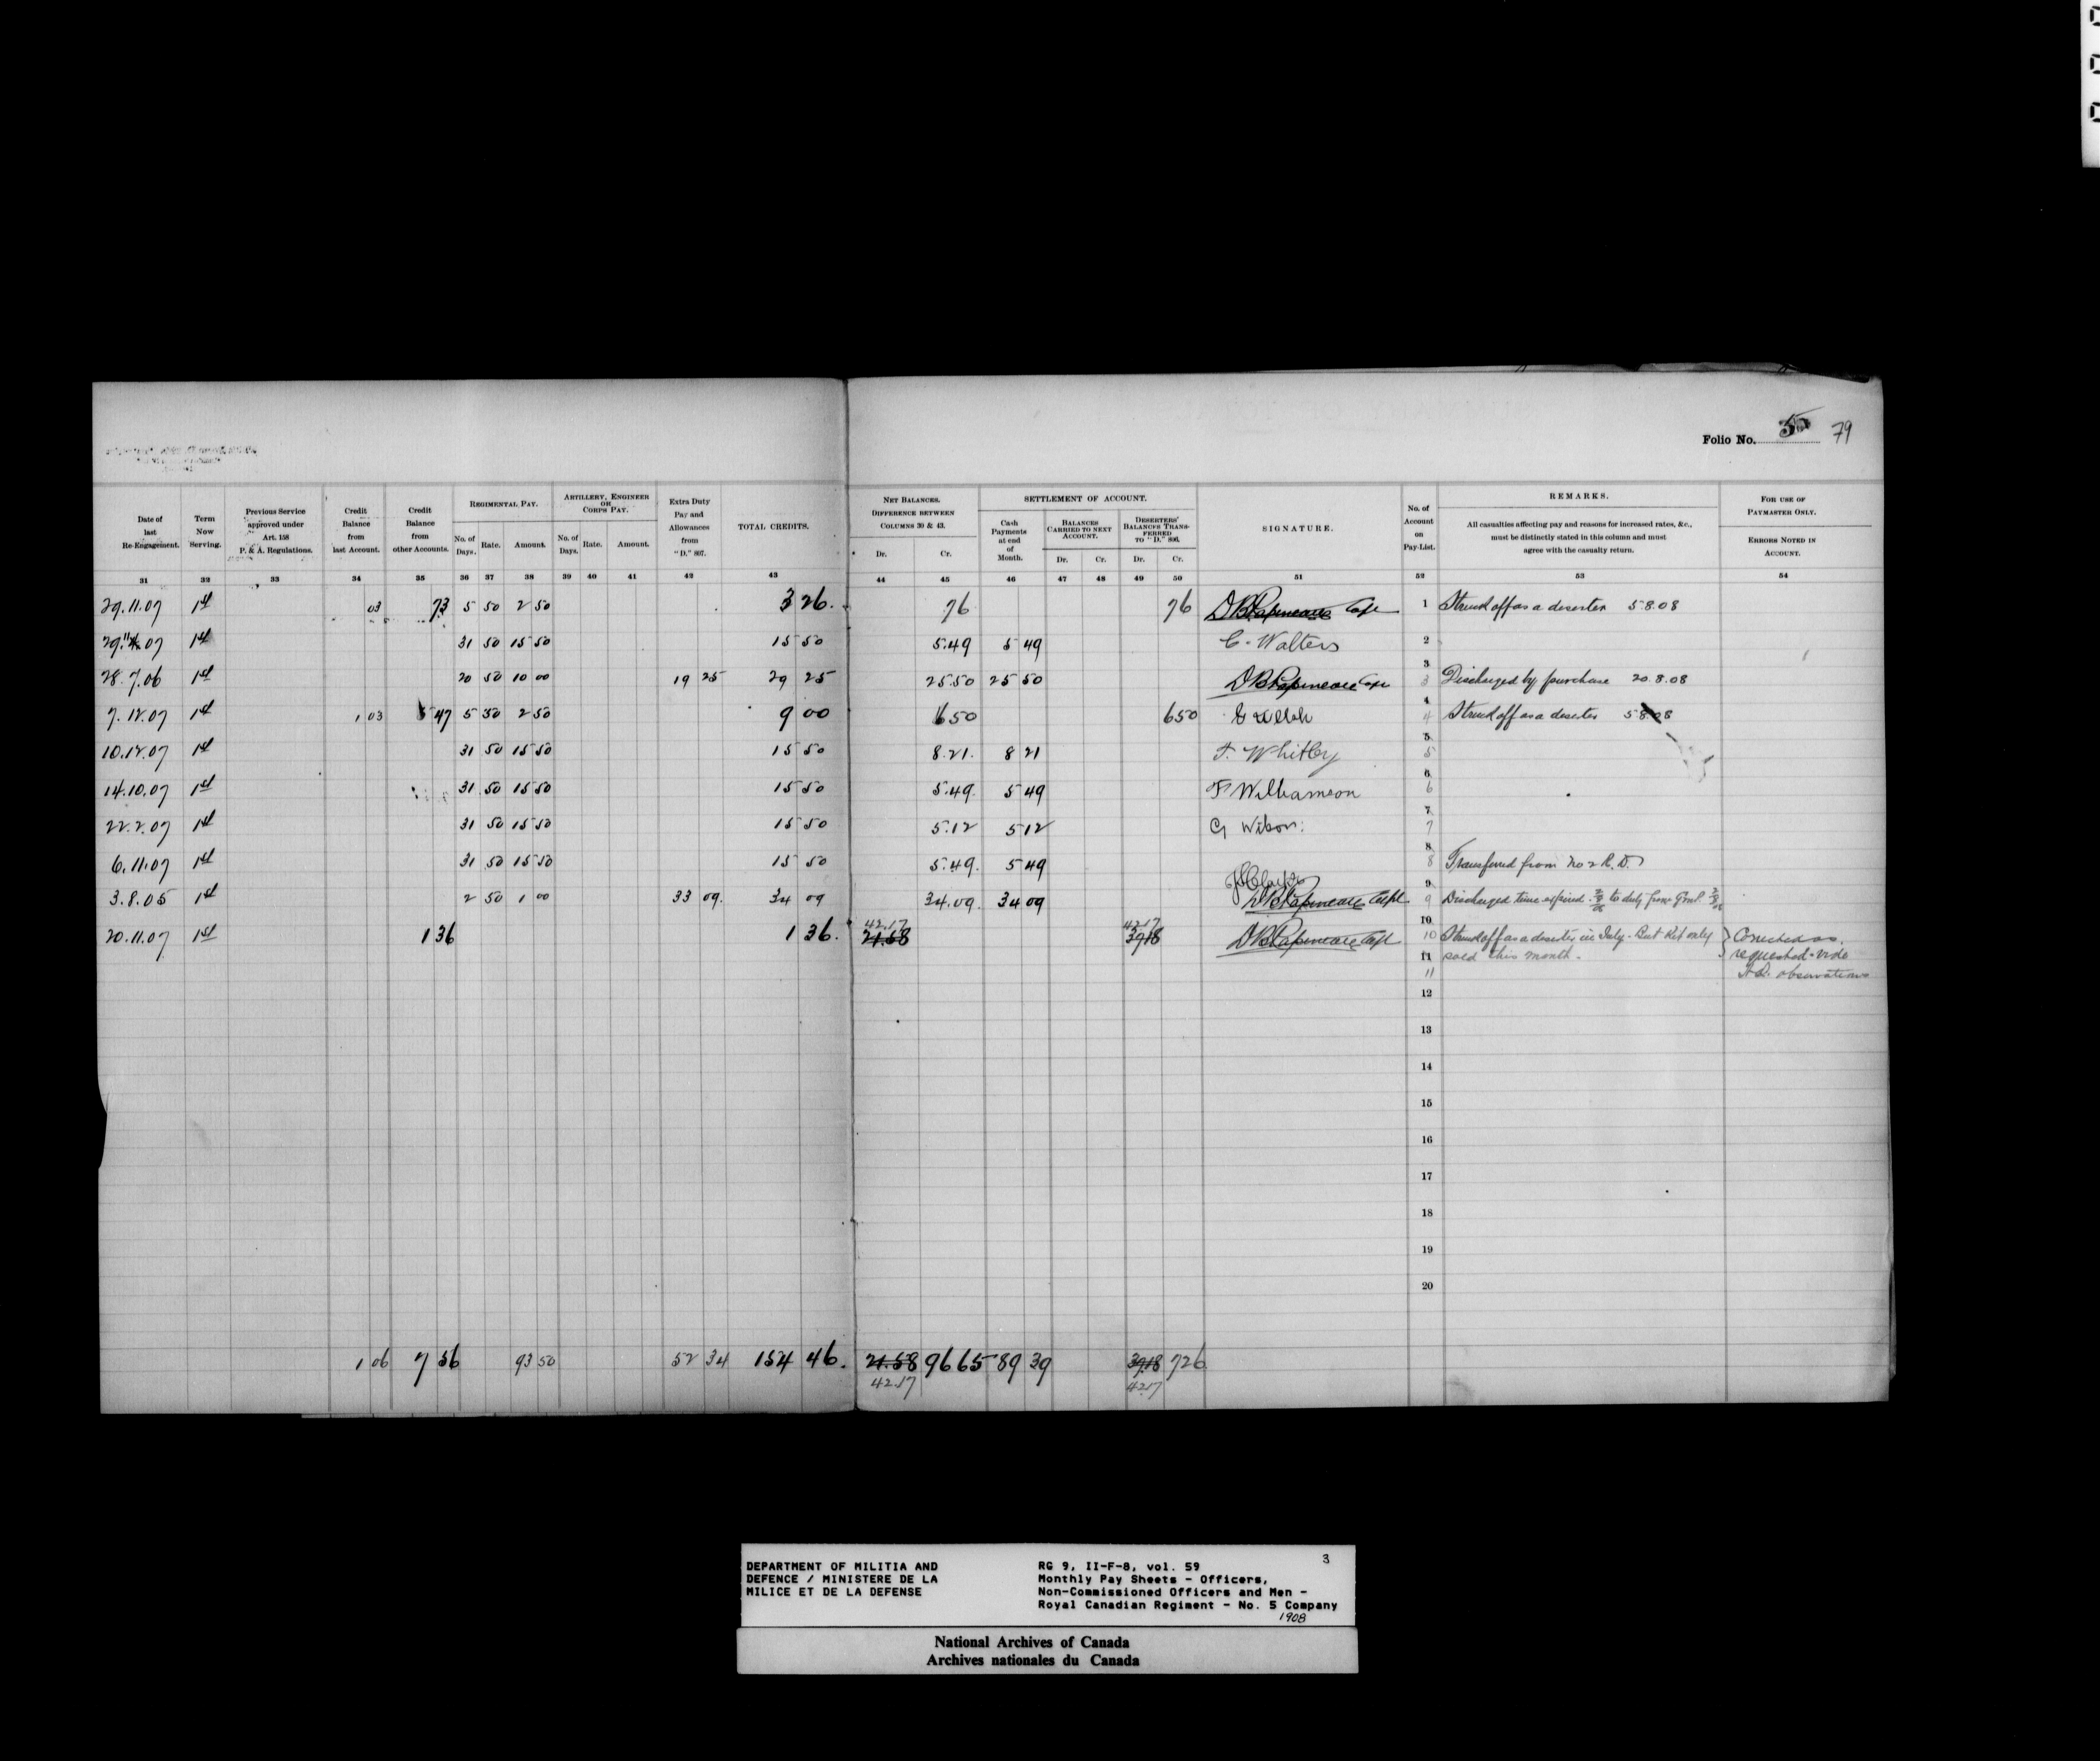 Folio No. 50 79
Date of last Re-Engagement. Term Now Serving. Previous Service approved under Art. 158 P. & A. Regulations. Credit Balance from last Account. Credit Balance from other Accounts. REGIMENTAL PAY. No. of Days. Rate. Amount. ARTILLERY, ENGINEER OR CORPS PAY. No. of Days. Rate. Amount. Extra Duty Pay and Allowances from "D." 807. TOTAL CREDITS. NET BALANCES. DIFFERENCE BETWEEN COLUMNS 30 & 43. Dr. Cr. SETTLEMENT OF ACCOUNT. Cash Payments at end of Month. BALANCES CARRIED TO NEXT ACCOUNT. Dr. Cr. DESERTERS' BALANCES TRANSFERRED TO "D." 806. Dr. Cr. SIGNATURE. No. of Account on Pay-List. REMARKS. All casualties affecting pay and reasons for increased rates, &c., must be distinctly stated in this column and must agree with the casualty return. FOR USE OF PAYMASTER ONLY. ERRORS NOTED IN ACCOUNT.
31 32 33 34 35 36 37 38 39 40 41 42 43 44 45 46 47 48 49 50 51 52 53 54
29.11.07 1st 03 73 5 50 2 50 3 26. 76 76 D B Papineau Capt 1 Struck off as a deserter 5.8.08
07 1st 31 50 15 50 15 50 5.49 5 49 C. Walters 2
28.7.06 1st 20 50 10 00 19 25 29 25 25.50 25 50 D B Papineau Capt 3 3 Discharged by purchase 20.8.08
7.12.07 1st 1 03 5 47 5 50 2 50 9 00 6 50 6 50 4 4 Struck off as a deserter 5.8.08
10.12.07 1st 31 50 15 50 15 50 8.21. 8 21 F. Whitley 5 5
14.10.07 1st 31 50 15 50 15 50 5.49. 5 49 F Williamson 6 6
22.2.07 1st 31 50 15 50 15 50 5.12 5 12 G Wilson. 7 7
6.11.07 1st 31 50 15 50 15 50 5.49. 5 49 8 8 Transferred from No 2 R. D.
3.8.05 1st 2 50 1 00 33 09. 34 09 34.09. 34 09 D B Papineau Capt 9 9 Discharged time expired to duty from
20.11.07 1st 1 36 1 36. 42.17 21.58 42.17 37.18 D B Papineau Capt 10 10 Struck off as a deserter in July. But Kit only } Corrected as
11 sold this month. requested. vide
11 observations
12
13
14
15
16
17
18
19
20
1 06 7 56 93 50 52 34 154 46. 21.58 96 65 89 39 37.18 7 26
42.17 42.17
DEPARTMENT OF MILITIA AND
DEFENCE / MINISTERE DE LA
MILICE ET DE LA DEFENSE
RG 9, II-F-8, vol. 59 3
Monthly Pay Sheets - Officers,
Non-Commissioned Officers and Men -
Royal Canadian Regiment - No. 5 Company
1908
National Archives of Canada
Archives nationales du Canada